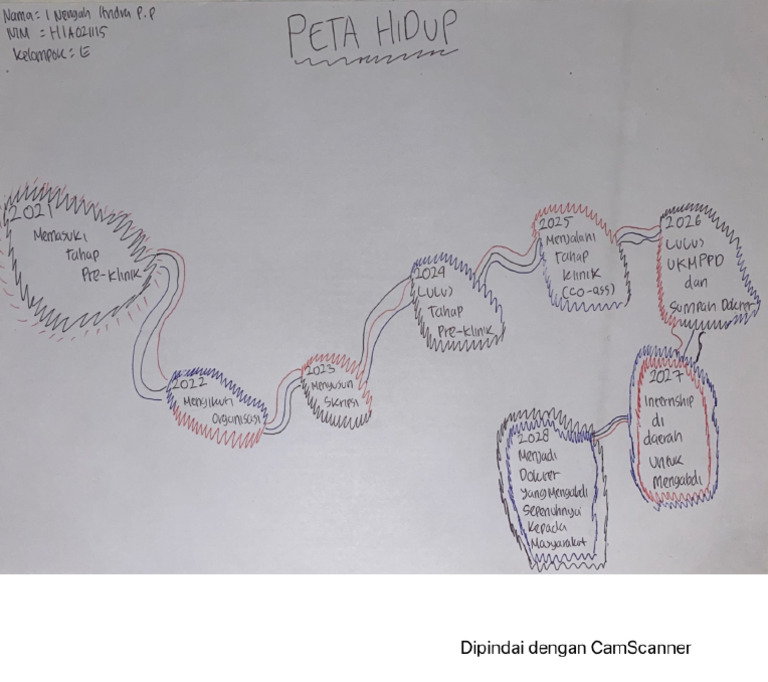 Nama : I Nengah Indra P.P
NIM : H1A021115
Kelompok : E
PETA HIDUP
2021
Memasuki
tahap
Pre-klinik
2022
Mengikuti
Organisasi
2023
Menyusun
Skripsi
2024
LULUS
Tahap
Pre-klinik
2025
Menjalani
tahap
klinik
(co-ass)
2026
LULUS
UKMPPD
dan
Sumpah Dokter
2027
Internship
di
daerah
untuk
Mengabdi
2028
Menjadi
Dokter
yang Mengabdi
Sepenuhnya
Kepada
Masyarakat
Dipindai dengan CamScanner